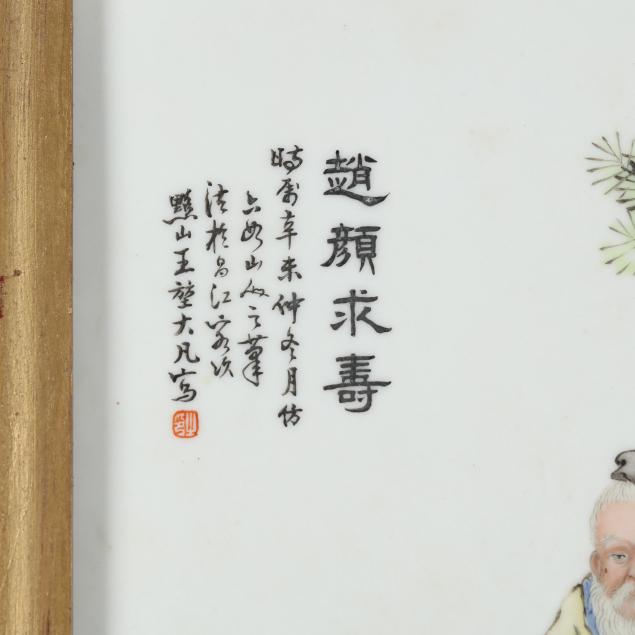 趙顏求壽
時屬辛未仲冬月仿
六如山人之筆
法於昌江客次
黟山王堃大凡寫